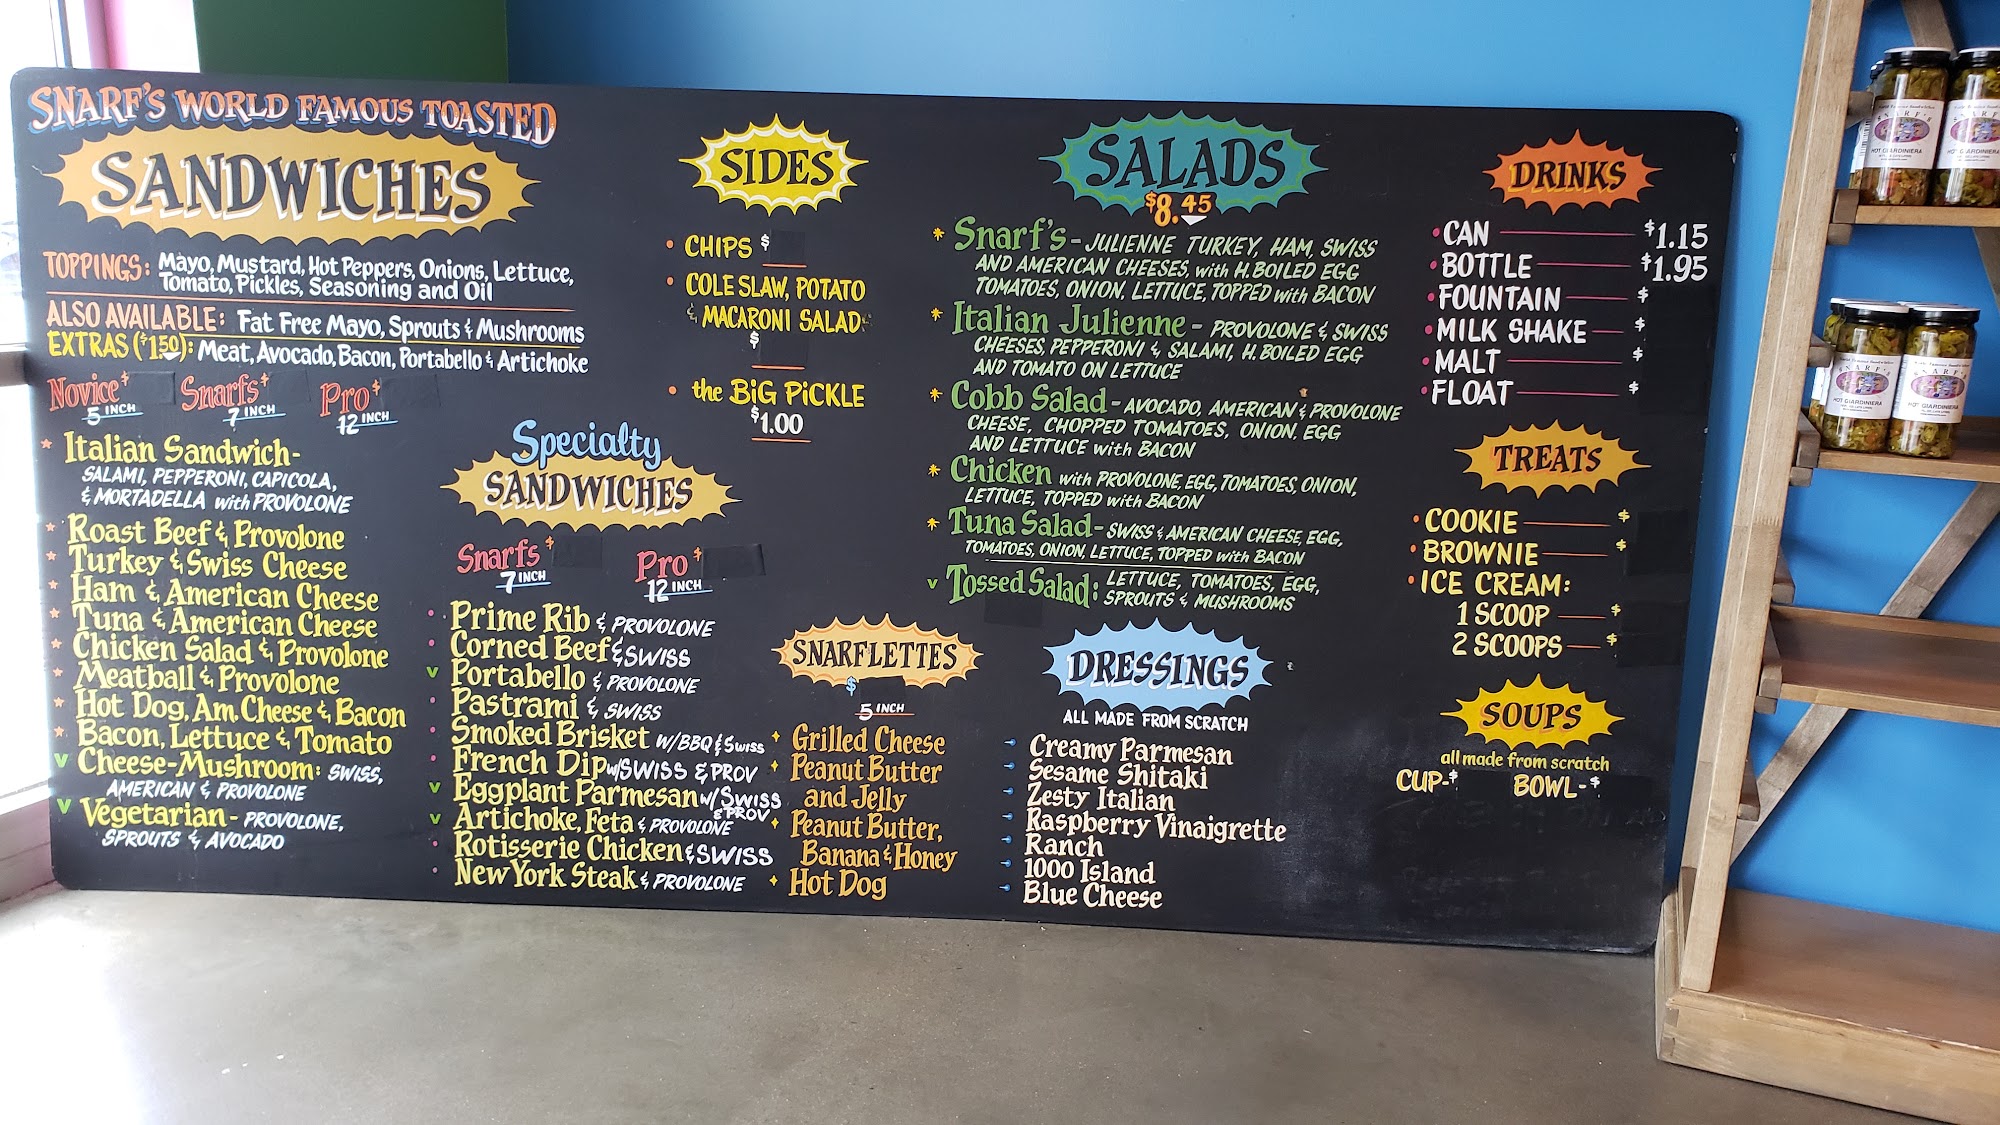 SNARF'S WORLD FAMOUS TOASTED
SANDWICHES
TOPPINGS: Mayo, Mustard, Hot Peppers, Onions, Lettuce,
Tomato, Pickles, Seasoning and Oil
ALSO AVAILABLE: Fat Free Mayo, Sprouts & Mushrooms
EXTRAS ($1.50): Meat, Avocado, Bacon, Portabello & Artichoke
Novice $ Snarfs $ Pro $
5 INCH 7 INCH 12 INCH
Italian Sandwich-
SALAMI, PEPPERONI, CAPICOLA,
& MORTADELLA with PROVOLONE
Roast Beef & Provolone
Turkey & Swiss Cheese
Ham & American Cheese
Tuna & American Cheese
Chicken Salad & Provolone
Meatball & Provolone
Hot Dog, Am. Cheese & Bacon
Bacon, Lettuce & Tomato
v Cheese-Mushroom: SWISS,
AMERICAN & PROVOLONE
v Vegetarian - PROVOLONE,
SPROUTS & AVOCADO
Specialty
SANDWICHES
Snarfs $ Pro $
7 INCH 12 INCH
Prime Rib & PROVOLONE
Corned Beef & SWISS
v Portabello & PROVOLONE
Pastrami & SWISS
Smoked Brisket W/BBQ & Swiss
French Dip w/SWISS & PROV
v Eggplant Parmesan w/ SWISS
& PROV
v Artichoke, Feta & PROVOLONE
Rotisserie Chicken & SWISS
New York Steak & PROVOLONE
SIDES
CHIPS $
COLE SLAW, POTATO
& MACARONI SALAD
$
the BiG PiCKLE
$1.00
SNARFLETTES
$
5 INCH
Grilled Cheese
Peanut Butter
and Jelly
Peanut Butter,
Banana & Honey
Hot Dog
SALADS
$8.45
Snarf's - JULIENNE TURKEY, HAM, SWISS
AND AMERICAN CHEESES, with H. BOILED EGG
TOMATOES, ONION, LETTUCE, TOPPED with BACON
Italian Julienne - PROVOLONE & SWISS
CHEESES, PEPPERONI & SALAMI, H. BOILED EGG
AND TOMATO ON LETTUCE
Cobb Salad - AVOCADO, AMERICAN & PROVOLONE
CHEESE, CHOPPED TOMATOES, ONION, EGG
AND LETTUCE with BACON
Chicken with PROVOLONE, EGG, TOMATOES, ONION,
LETTUCE, TOPPED with BACON
Tuna Salad - SWISS & AMERICAN CHEESE, EGG,
TOMATOES, ONION, LETTUCE, TOPPED with BACON
v Tossed Salad: LETTUCE, TOMATOES, EGG,
SPROUTS & MUSHROOMS
DRESSINGS
ALL MADE FROM SCRATCH
Creamy Parmesan
Sesame Shitaki
Zesty Italian
Raspberry Vinaigrette
Ranch
1000 Island
Blue Cheese
DRINKS
CAN $1.15
BOTTLE $1.95
FOUNTAIN $
MILK SHAKE $
MALT $
FLOAT $
TREATS
COOKIE $
BROWNIE $
ICE CREAM:
1 SCOOP $
2 SCOOPS $
SOUPS
all made from scratch
CUP-$ BOWL-$
SNARF'S
HOT GIARDINIERA
HOT GIARDINIERA
SNARF'S
HOT GIARDINIERA
HOT GIARDINIERA